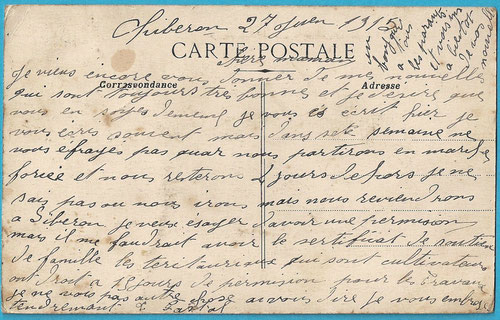 Siberon 27 Juin 1915
CARTE POSTALE
Correspondance
Adresse
chère maman
je viens encore vous donner de mes nouvelles
qui sont toujours très bonnes et je désire que
vous en soyez de meme je vous es écrit hier je
vous ecris souvent mais dans sete semaine ne
vous efrayes pas quar nous partirons en marche
forcée et nous resterons 2 jours dehors je ne
sais pas ou nous irons mais nous reviendrons
a Siberon je veux esayer d'avoir une permission
mais il me faudrait avoir le sertificat de soutien
de famille les teritauriaux qui sont cultivateurs
ont droit a 15 jours de permission pour les travaux
je ne vous pas autre chose a vous dire je vous embrase
tendremant
un
bonjour
a tous
les parants
et voisins
a bientot
de vos
nouvelles